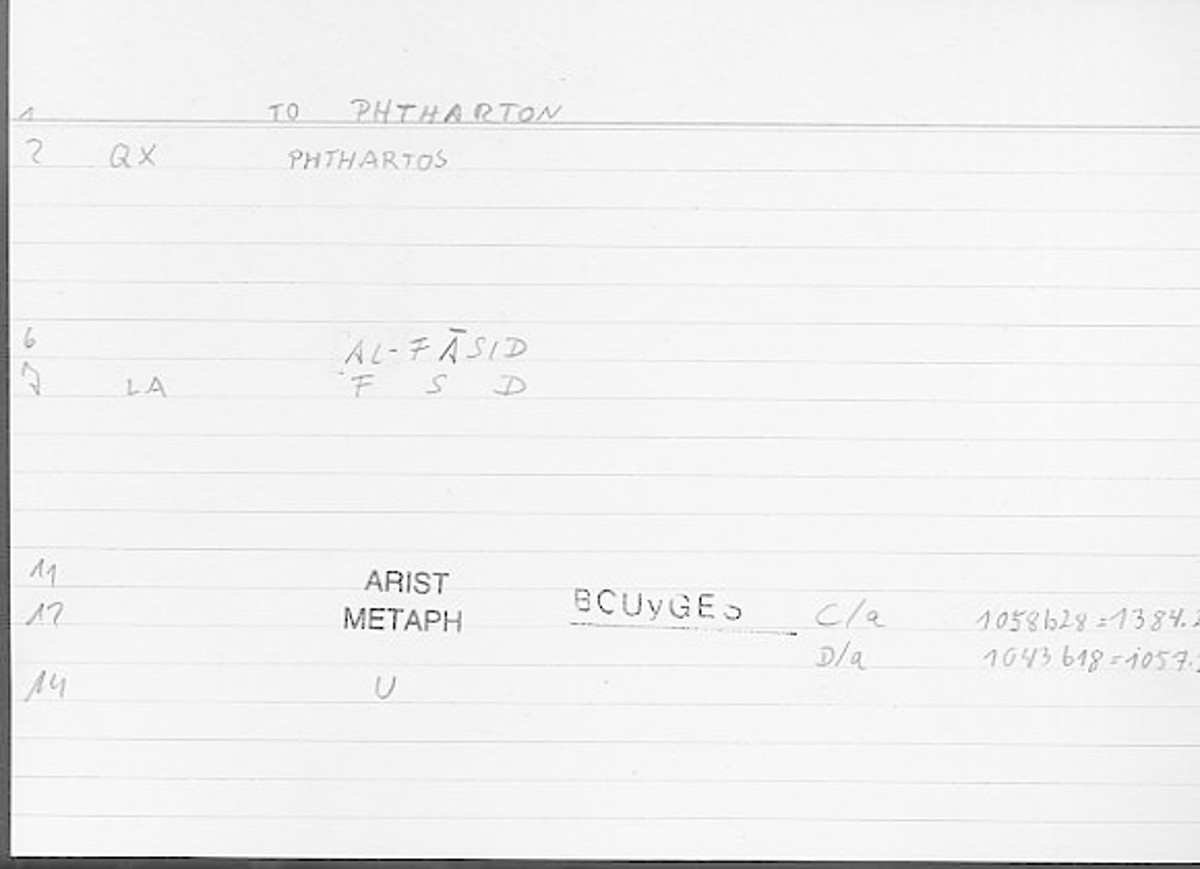 1 TO PHTHARTON
2 QX PHTHARTOS
6 AL-FĀSID
7 LA F S D
11 ARIST
12 METAPH BCUyGE C/a 1058b28=1384.
D/a 1043b18=1057.
14 U